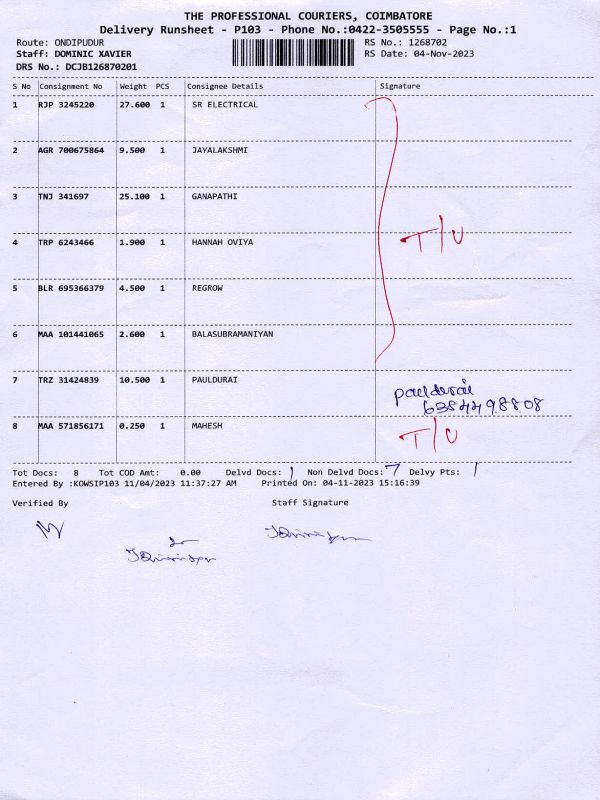 THE PROFESSIONAL COURIERS, COIMBATORE
Delivery Runsheet - P103 - Phone No.:0422-3505555 - Page No.:1
Route: ONDIPUDUR RS No.: 1268702
Staff: DOMINIC XAVIER RS Date: 04-Nov-2023
DRS No.: DCJB126870201
S No Consignment No Weight PCS Consignee Details Signature
1 RJP 3245220 27.600 1 SR ELECTRICAL
2 AGR 700675864 9.500 1 JAYALAKSHMI
3 TNJ 341697 25.100 1 GANAPATHI
T/U
4 TRP 6243466 1.900 1 HANNAH OVIYA
5 BLR 695366379 4.500 1 REGROW
6 MAA 101441065 2.600 1 BALASUBRAMANIYAN
7 TRZ 31424839 10.500 1 PAULDURAI Pauldurai
6384498808
8 MAA 571856171 0.250 1 MAHESH T/U
Tot Docs: 8 Tot COD Amt: 0.00 Delvd Docs: 1 Non Delvd Docs: 7 Delvy Pts: 1
Entered By :KOWSIP103 11/04/2023 11:37:27 AM Printed On: 04-11-2023 15:16:39
Verified By Staff Signature